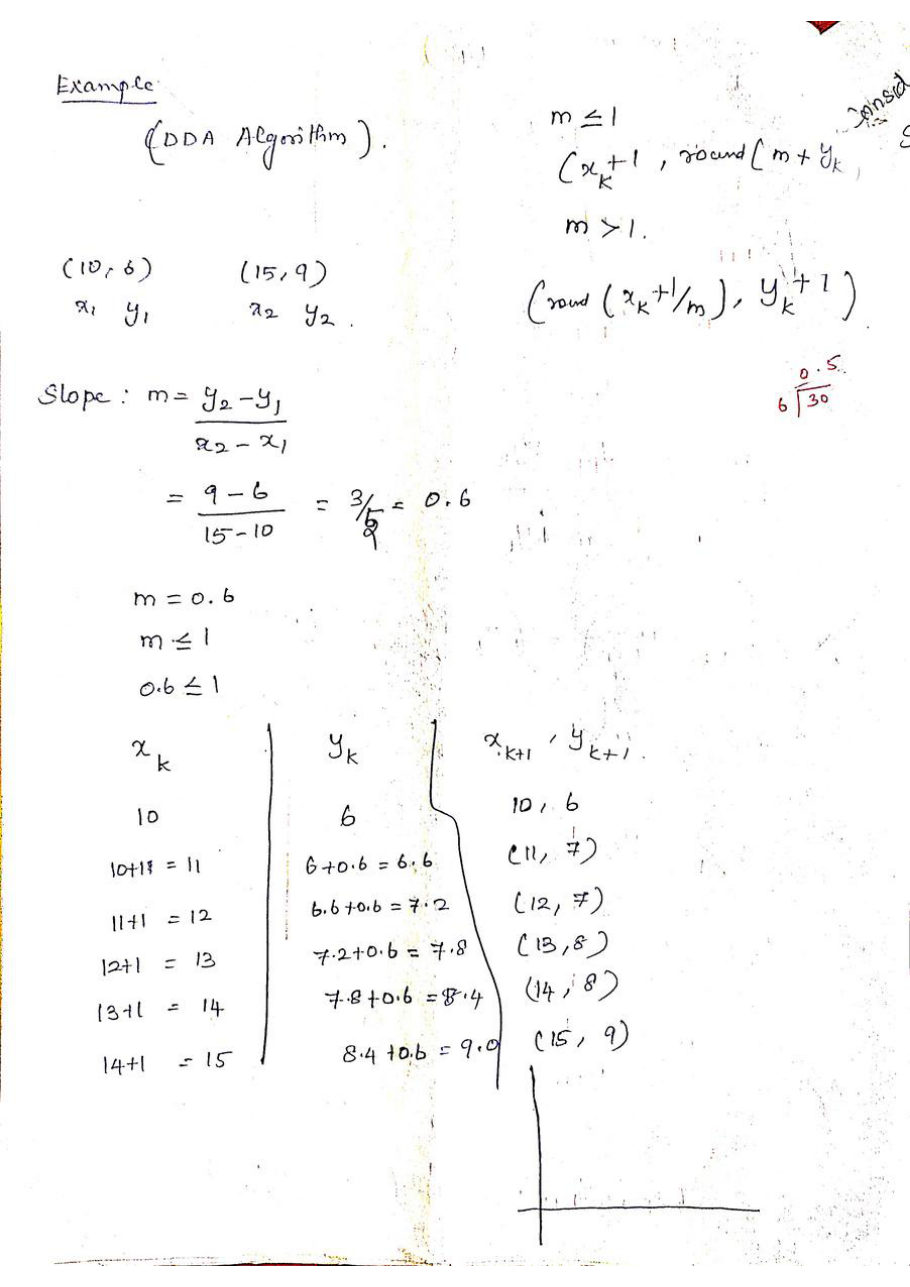 Example
(DDA Algorithm).
m ≤ 1
(xₖ+1, round(m + yₖ,
m > 1.
(round (xₖ+1/m), yₖ+1)
(10, 6) (15, 9)
x₁ y₁ x₂ y₂.
0.5
6 30
Slope : m = y₂ - y₁
x₂ - x₁
= 9 - 6 = 3/5 = 0.6
15 - 10
m = 0.6
m ≤ 1
0.6 ≤ 1
xₖ yₖ xₖ₊₁, yₖ₊₁.
10 6 10, 6
= 11 6+0.6 = 6.6 (11, 7)
11+1 = 12 6.6+0.6 = 7.2 (12, 7)
12+1 = 13 7.2+0.6 = 7.8 (13, 8)
13+1 = 14 7.8+0.6 = 8.4 (14, 8)
14+1 = 15 8.4+0.6 = 9.0 (15, 9)